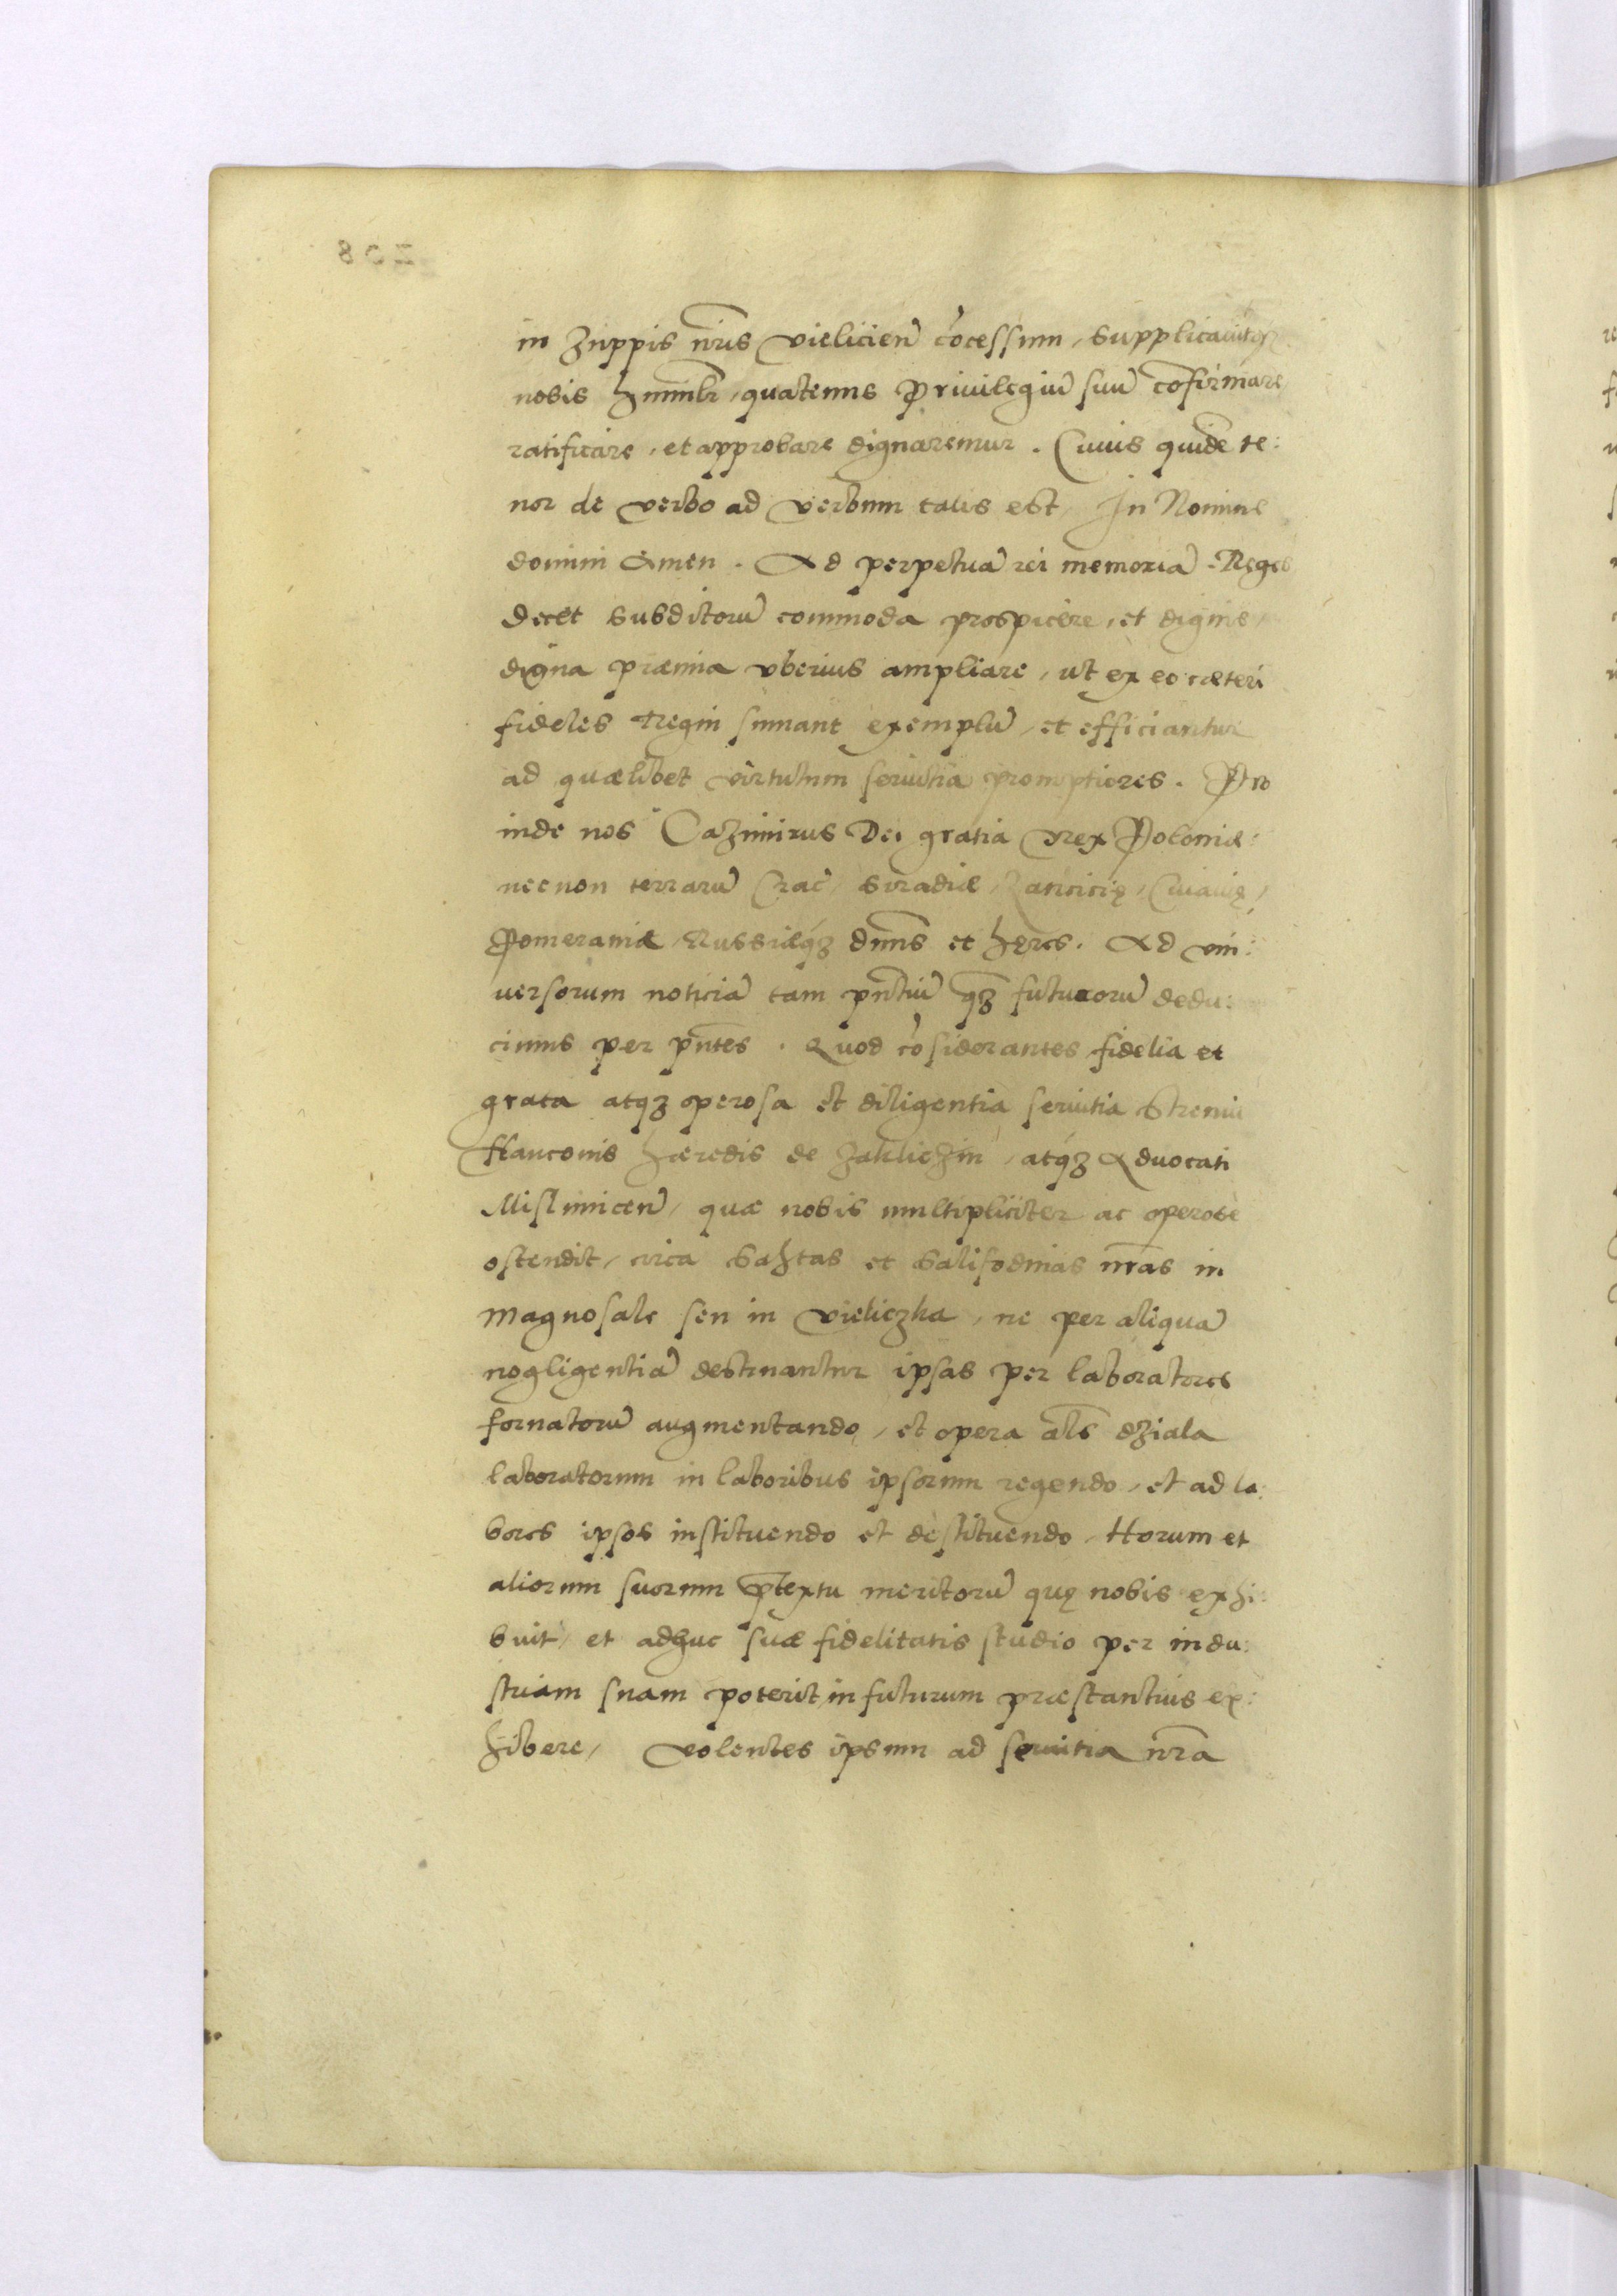 in Zuppis nr̃is Vielicień cōcessum, supplicavitq́ꝫ
nobis humilr̃, quatenus Privilegiū suū cōfirmare,
ratificare, et approbare dignaremur. Cuius quidē te:
nor de verbo ad verbum talis est, In Nomine
domini Amen. Ad perpetuā rei memoriā. Reges
decet subditorū commoda prospicere, et dignis,
digna præmia vberius ampliare, ut ex eo cæteri
fideles Regni sumant exemplū, et efficiantur
ad quælibet virtutum servitia promptiores. Pro
inde nos Cazimirus Dei gratia Rex Poloniæ:
necnon terrarū Crac̃, Siradiæ, Lancicię, Cuiavię,
Pomeraniæ, Russiæq́ꝫ dnũs et hęres. Ad uni:
versorum noticiā tam pñtiū qꝫ̃ futurorū dedu:
cimus per pñtes. Quod cōsiderantes fidelia et
grata atqꝫ operosa et diligentia servitia Strenui
Hanconis Hæredis de Zakliczin, atq́ꝫ Advocati
Mislimiceń, quæ nobis multipliciter ac operose
ostendit, circa Sahtas et Salisodinas nr̃as in
Magnosale seu in Vieliczka, ne per aliquā
negligentiā destruantur ipsas per laboratores
fornatorū augmentando, et opera al̃s dziala
laboratorum in laboribus ipsorum regendo, et ad la:
bores ipsos instituendo et destituendo, Horum et
aliorum suorum p̃textu meritorū quę nobis exhi:
buit, et adhuc suæ fidelitatis studio per indu:
striam suam poterit in futurum præstantius ex:
hibere, Volentes ipsum ad servitia nr̃a
208